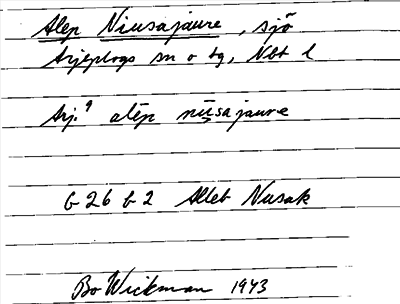 Alep Niusajaure, sjö
Arjeplogs sn o tg, Nbt l
Arj. 9 alēp nūsajaure
G 26 b 2 Alleb Nusak
Bo Wickman 1943